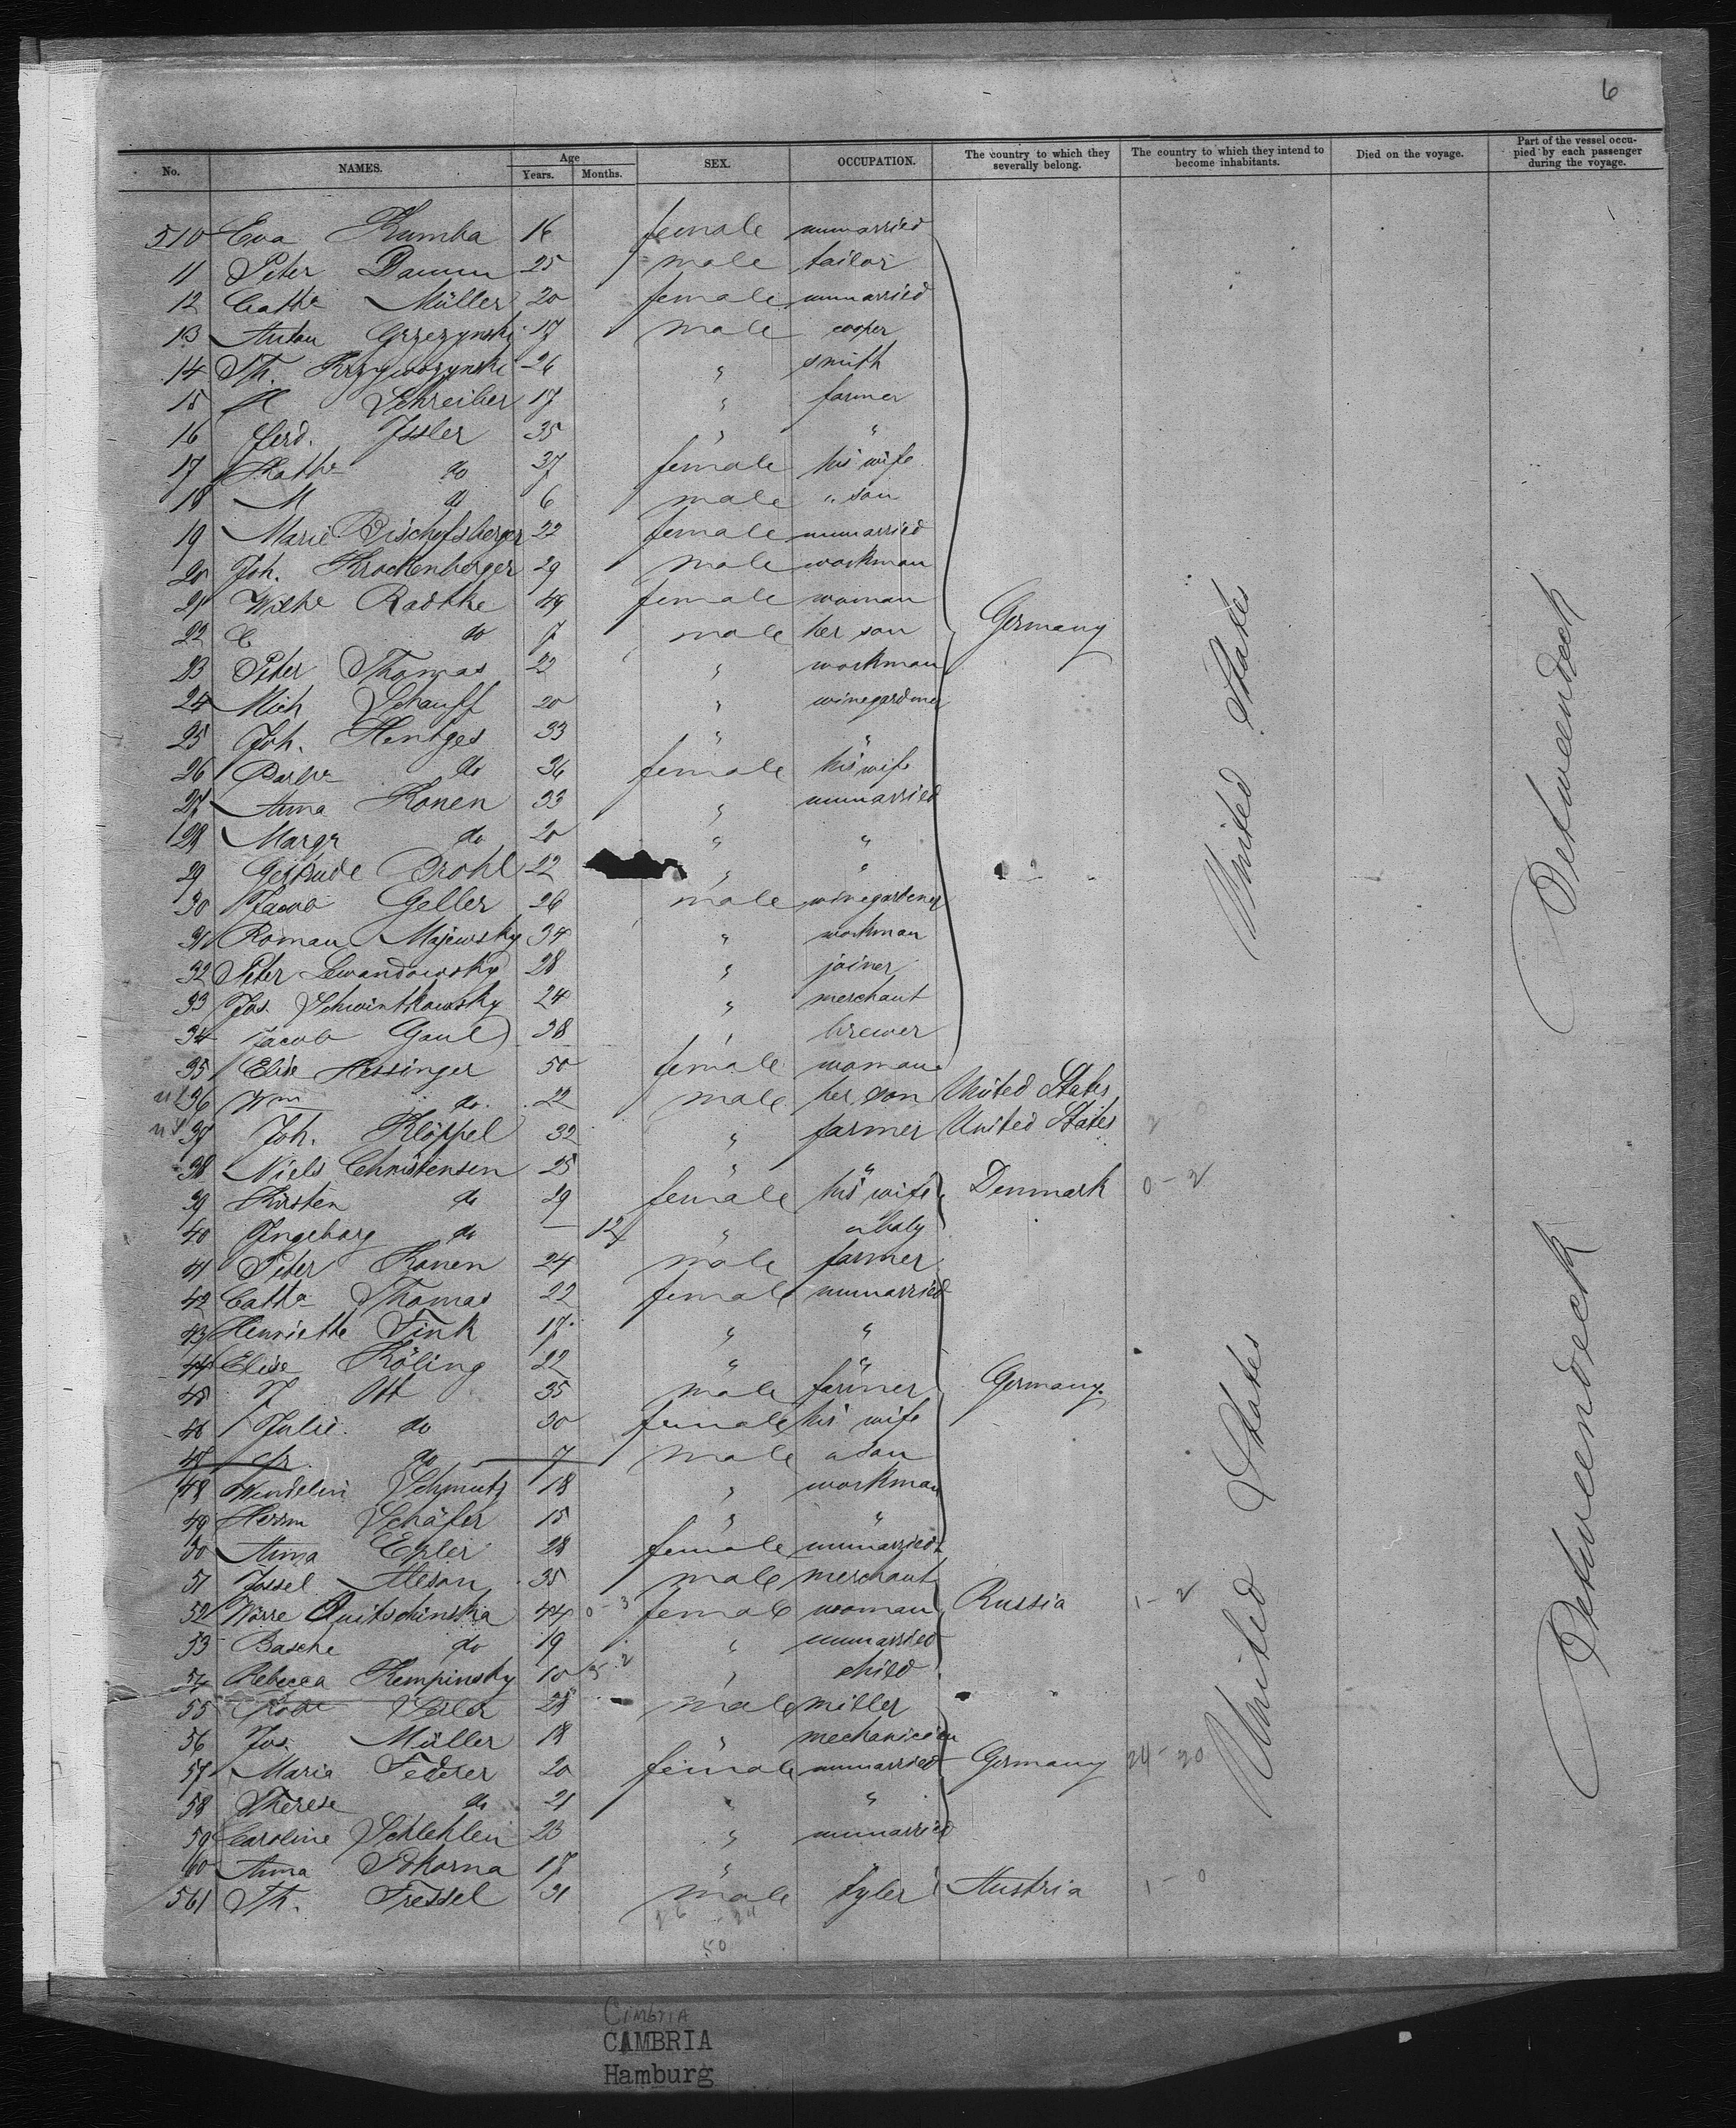 6
No. NAMES. Age Years. Months. SEX. OCCUPATION. The country to which they severally belong. The country to which they intend to become inhabitants. Died on the voyage. Part of the vessel occupied by each passenger during the voyage.
510 Eva Kumba 16 female unmarried
11 Peter Damm 25 male tailor
12 Cathe Müller 20 female unmarried
13 Anton Grzezynski 17 male cooper
14 Th. Krzywozynski 26 " smith
15 Schreiber 17 " farmer
16 Ferd. Issler 35 " "
17 Kathe do 37 female his wife
18 M do 6 male " son
19 Marie Bischofsberger 22 female unmarried
20 Joh. Krockenberger 29 male workman
21 Wilhe Radtke 49 female woman
22 C do 7 male her son Germany
23 Peter Thomas 22 " workman
24 Mich Schauff 20 " winegardner
25 Joh. Hentges 33 " "
26 Barba do 36 female his wife
27 Anna Konen 33 " unmarried
28 Margr do 20 " "
29 Gertrude Brohl 22 " "
30 Jacob Geller 26 male winegartener United States Betweendeck
31 Roman Majewsky 34 " workman
32 Peter Lewandowsky 28 " joiner
33 Jos. Schwintkowsky 24 " merchant
34 Jacob Gaul 38 " brewer
35 Elise Hessinger 50 female woman
36 Wm do. 22 male her son United States
37 Joh. Klöppel 32 " farmer United States
38 Niels Christensen 25 " "
39 Kirsten do 29 female his wife Denmark 0-2
40 Ingeborg do — 12 " a baby
41 Peter Konen 24 male farmer
42 Catha Thomas 22 female unmarried
43 Henriette Fink 17 " "
44 Elise Röling 22 " "
45 J Ott 35 male farmer Germany.
46 Julie do 30 female his wife
47 do 7 male a son
48 Wendelin Schmutz 18 " workman
49 Herrm Schäfer 15 " "
50 Anna Epler 28 female unmarried
51 Jossel Aleson 35 male merchant
52 Quitschinskia 44 0-3 female woman Russia 1-2
53 Basche do 19 " unmarried
54 Rebecca Kempinsky 10 " child
55 28 male miller United States Betweendeck
56 Jos. Müller 18 " mechanician
57 Maria Federer 20 female unmarried Germany 24-20
58 Therese do 21 " "
59 Caroline Schlehlein 23 " unmarried
60 Anna Pokorna 17 " "
561 Th. Tressel 31 male tyler Austria 1-0
26 24
50
CIMBRIA
CAMBRIA
Hamburg